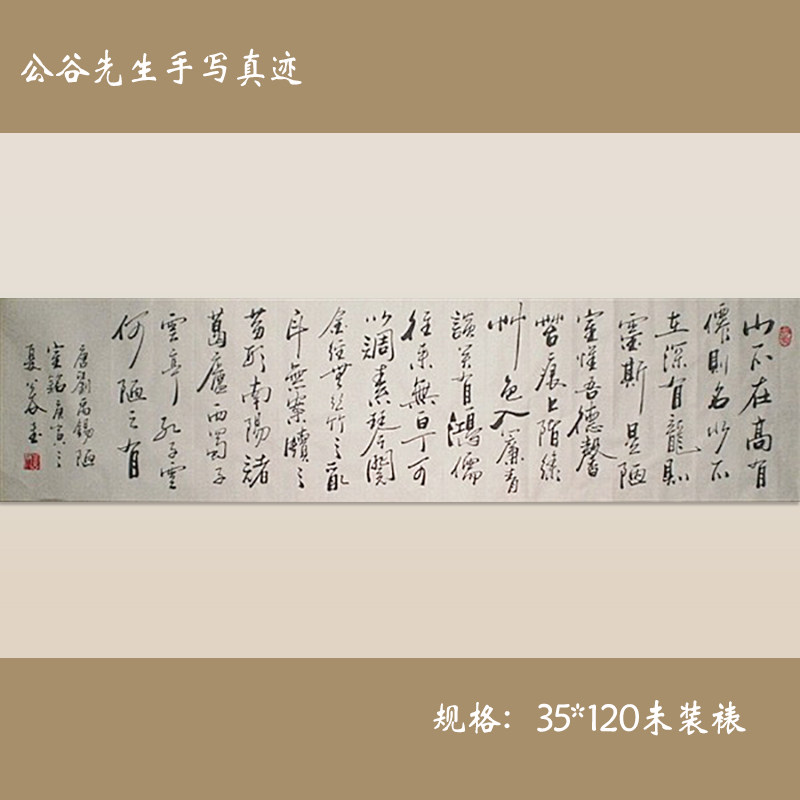 公谷先生手写真迹
山不在高有
僊則名水不
在深有龍則
靈斯是陋
室惟吾德馨
苔痕上階綠
艸色入簾青
談笑有鴻儒
往來無白丁可
以調素琴閱
金經無絲竹之亂
耳無案牘之
勞形南陽諸
葛廬西蜀子
雲亭孔子雲
何陋之有
唐劉禹錫陋
室銘庚寅之
夏公谷書
规格：35*120未装裱